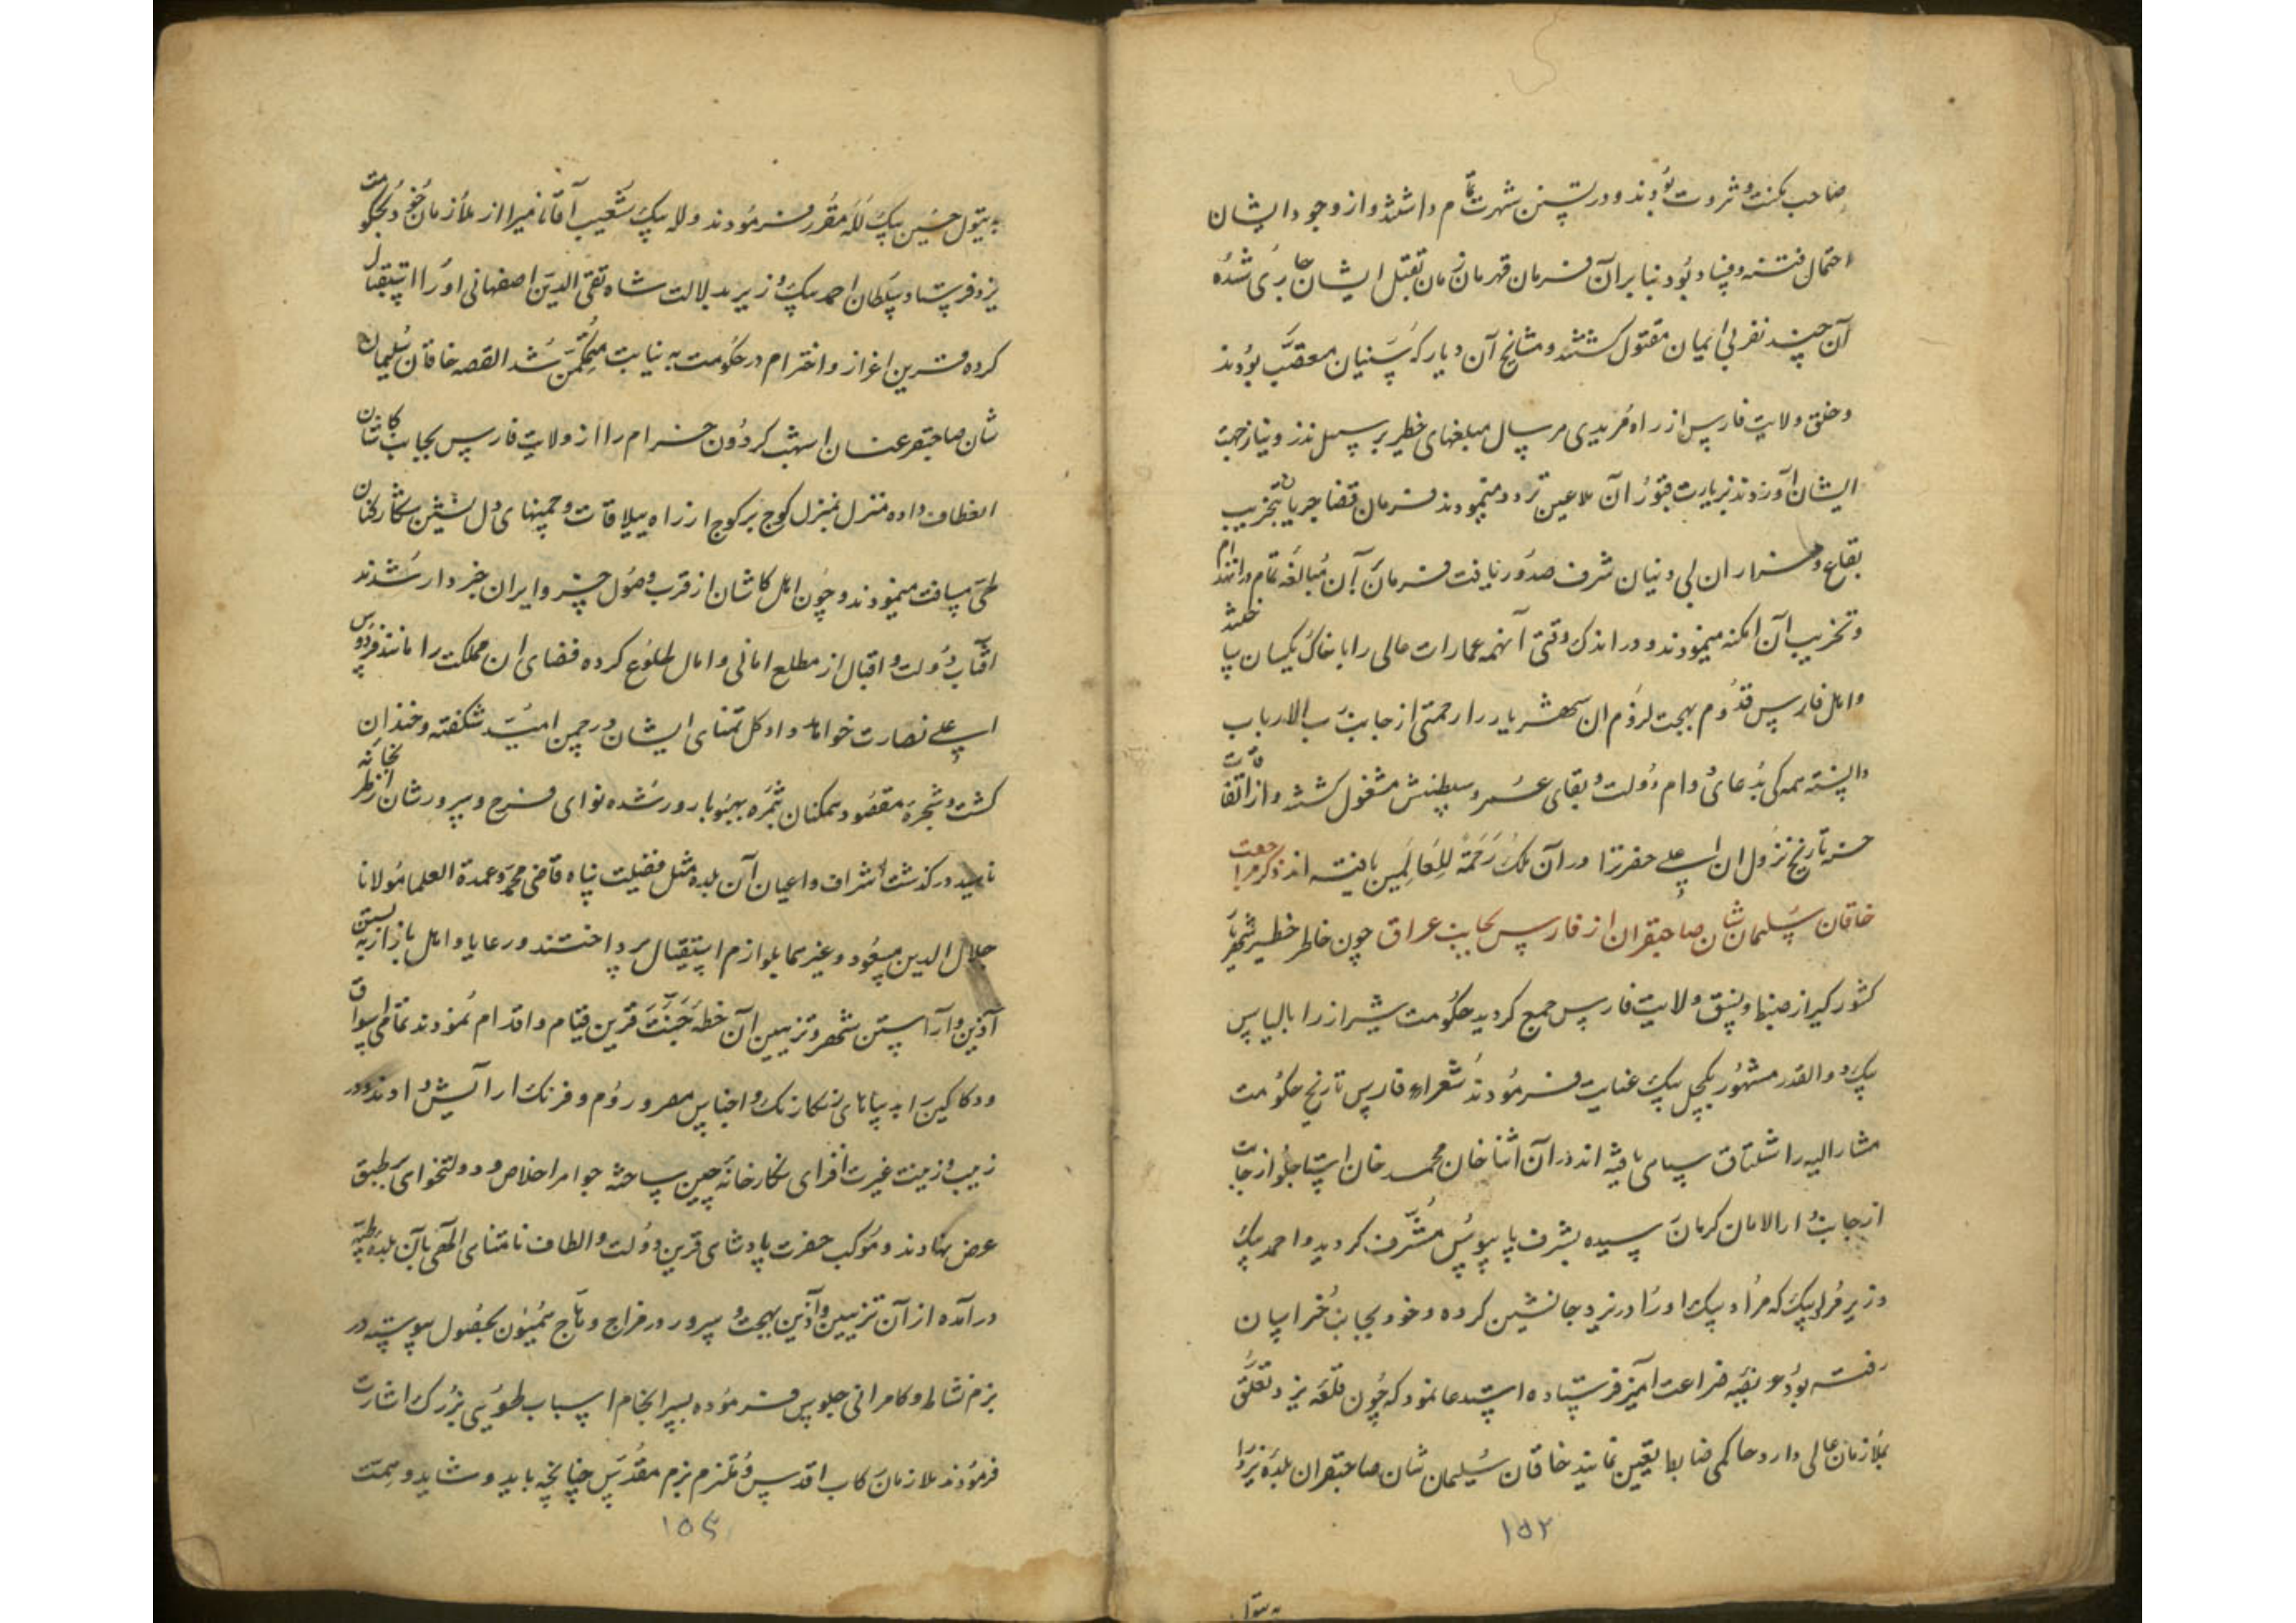 صاحب مکنت و ثروت بودند و در تسنن شهرت تمام داشتند و از وجود ایشان
احتمال فتنه و فساد بود بنابر آن فرمان قهرمان زمان بقتل ایشان جاری شده
آن چند نفر بی ایمان مقتول گشتند و مشایخ آن دیار که سنیان معصب بودند
و خلق ولایت فارس از راه مریدی هر سال مبلغهای خطیر بر سبیل نذر و نیاز جهت
ایشان آورده بزیارت قبور آن ملاعین تردد مینمودند فرمان قضا جریان بتخریب
بقاع و مزار ان بی دینان شرف صدور یافت مبالغه تمام در انهدام
و تخریب آن امکنه مینمودند و در اندک وقتی آنهمه عمارات عالی را با خاک یکسان ساختند
و اهل فارس قدوم بهجت لزوم ان شهریار را رحمتی از جانب رب الارباب
دانسته همگی بدعای دوام دولت و بقای عمر و سلطنتش مشغول گشتند و از اتفاقات
حسنه تاریخ نزول ان اعلی حضرت را در آن ملک رحمة للعالمین یافته اند ذکر مراجعت
خاقان سلیمان شان صاحبقران از فارس بجانب عراق چون خاطر خطیر شهریار
کشور کیر از ضبط و نسق ولایت فارس جمع کردید حکومت شیراز را بالیاس
بیک ذوالقدر مشهور بکچل بیک عنایت فرمودند شعراء فارس تاریخ حکومت
مشارالیه را شلتاق سپاهی یافته اند در آن اثنا خان محمد خان استاجلو از جانب
از جانب دارالامان کرمان رسیده بشرف پابوس مشرف کردید و احمد بیک
وزیر که مراد بیک او را در یزد جانشین کرده و خود بجانب خراسان
رفته بود عریضه ضراعت آمیز فرستاده استدعا نمود که چون قلعه یزد تعلق
بملازمان عالی دارد حاکمی ضابط تعیین نمایند خاقان سلیمان شان صاحبقران بلده یزد را
۱۵۲
به تیول حسین بیک لله مقرر فرمودند و لله بیک شعیب آقا نامی را از ملازمان خود بحکومت
یزد فرستاد سلطان احمد بیک وزیر بدلالت شاه تقی الدین اصفهانی او را استقبال
کرده قرین اعزاز و احترام در حکومت به نیابت متمکن شد القصه خاقان سلیمان
شان صاحبقر عنان اشهب کردون خرام را از ولایت فارس بجانب کاشان
انعطاف داده منزل بمنزل کوچ بر کوچ از راه ییلاقات و چمنهای دل نشین شکارکنان
طی مسافت مینمودند و چون اهل کاشان از قرب وصول خسرو ایران خبردار شدند
آفتاب دولت و اقبال از مطلع امانی و امال طلوع کرده فضای ان مملکت را مانند فردوس
اعلی نضارت خواهد داد کل تمنای ایشان در چمن امید شکفته و خندان
کشت و شجره مقصود همکنان بثمره بهبود بارور شده نوای فرح و سرورشان از نظر
ناهید درکذشت اشراف و اعیان آن بلده مثل فضیلت پناه قاضی محمد و عمدة العلما مولانا
جلال الدین مسعود و غیرهما بلوازم استقبال پرداختند و رعایا و اهل بازار به بستن
آذین و آراستن شهر و تزیین آن خطه جنت قرین قیام و اقدام نمودند تمامی اسواق
و دکاکین را به رنکارنک و اجناس مصر و روم و فرنک ارایش دادند و در
زیب و زینت غیرت افزای نکارخانه چین ساخته جواهر اخلاص و دولتخواهی بر طبق
عرض نهادند و موکب حضرت پادشاهی قرین دولت و الطاف نامتناهی الهی بآن بلده طیبه
درآمده از آن تزیین و آذین بهجت و سرور در مزاج وهاج همیون بحصول پیوسته در
بزم نشاط و کامرانی جلوس فرموده بسرانجام اسباب طویی بزرک اشارت
فرمودند ملازمان رکاب اقدس و ملتزم بزم مقدس چنانچه باید و شاید و همت
۱۵۳